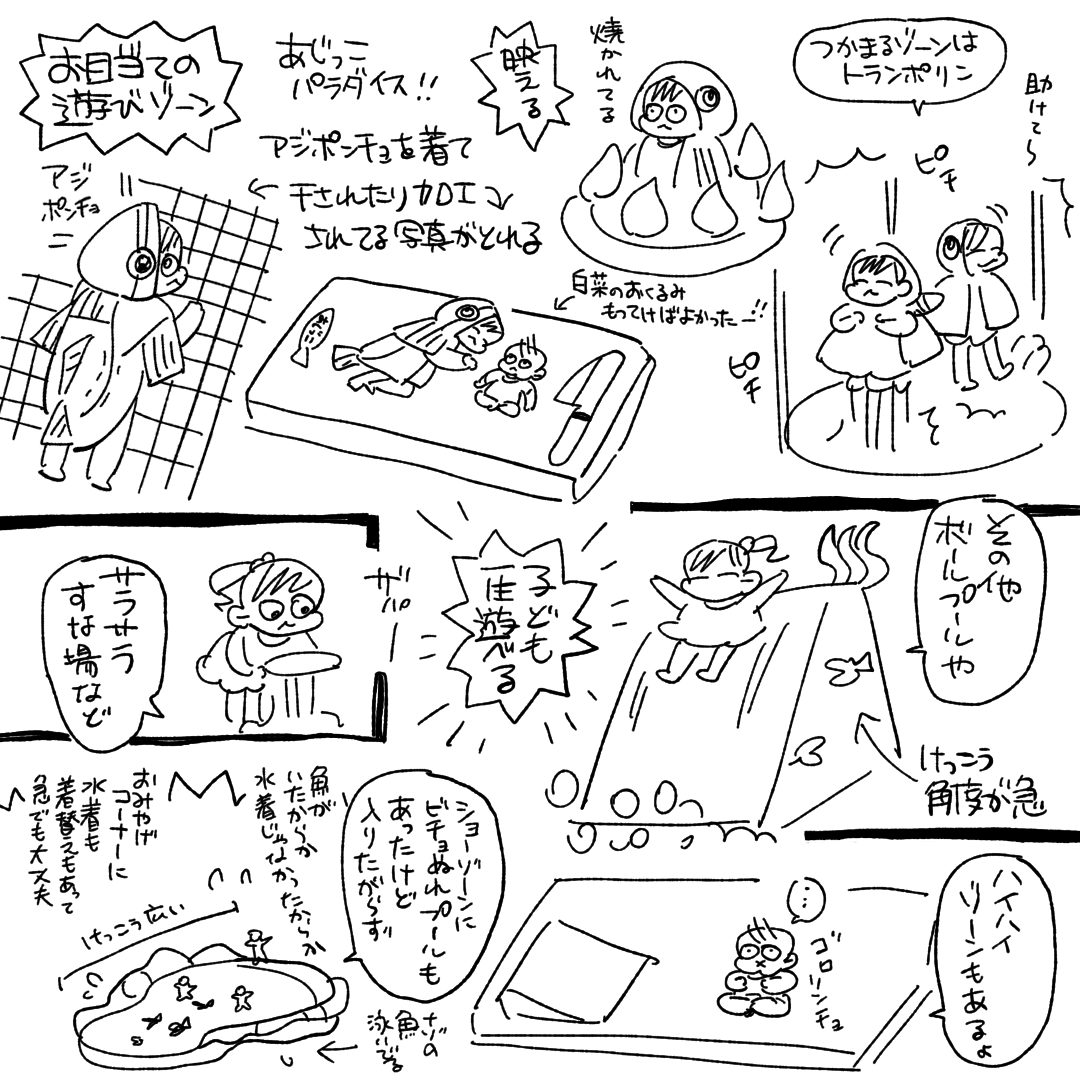 お目当ての
遊びゾーン
あじっこ
パラダイス!!
アジポンチョを着て
干されたり加工
されてる写真がとれる
アジ
ポンチョ
映える
焼かれてる
つかまるゾーンは
トランポリン
助けてら
ピチ
ピチ
白菜のおくるみ
もってけばよかったー!!
その他
ボールプールや
けっこう
角度が急
子ども
一生遊べる
ザパー
サラサラ
すな場など
ハイハイ
ゾーンもあるよ
…
ゴロリンチョ
ショーゾーンに
ビチョぬれプールも
あったけど
入りたがらず
魚が
いたからか
水着じゃなかったからか
おみやげ
コーナーに
水着も
着替えもあって
急でも大丈夫
けっこう広い
ナゾの
魚
泳いでる